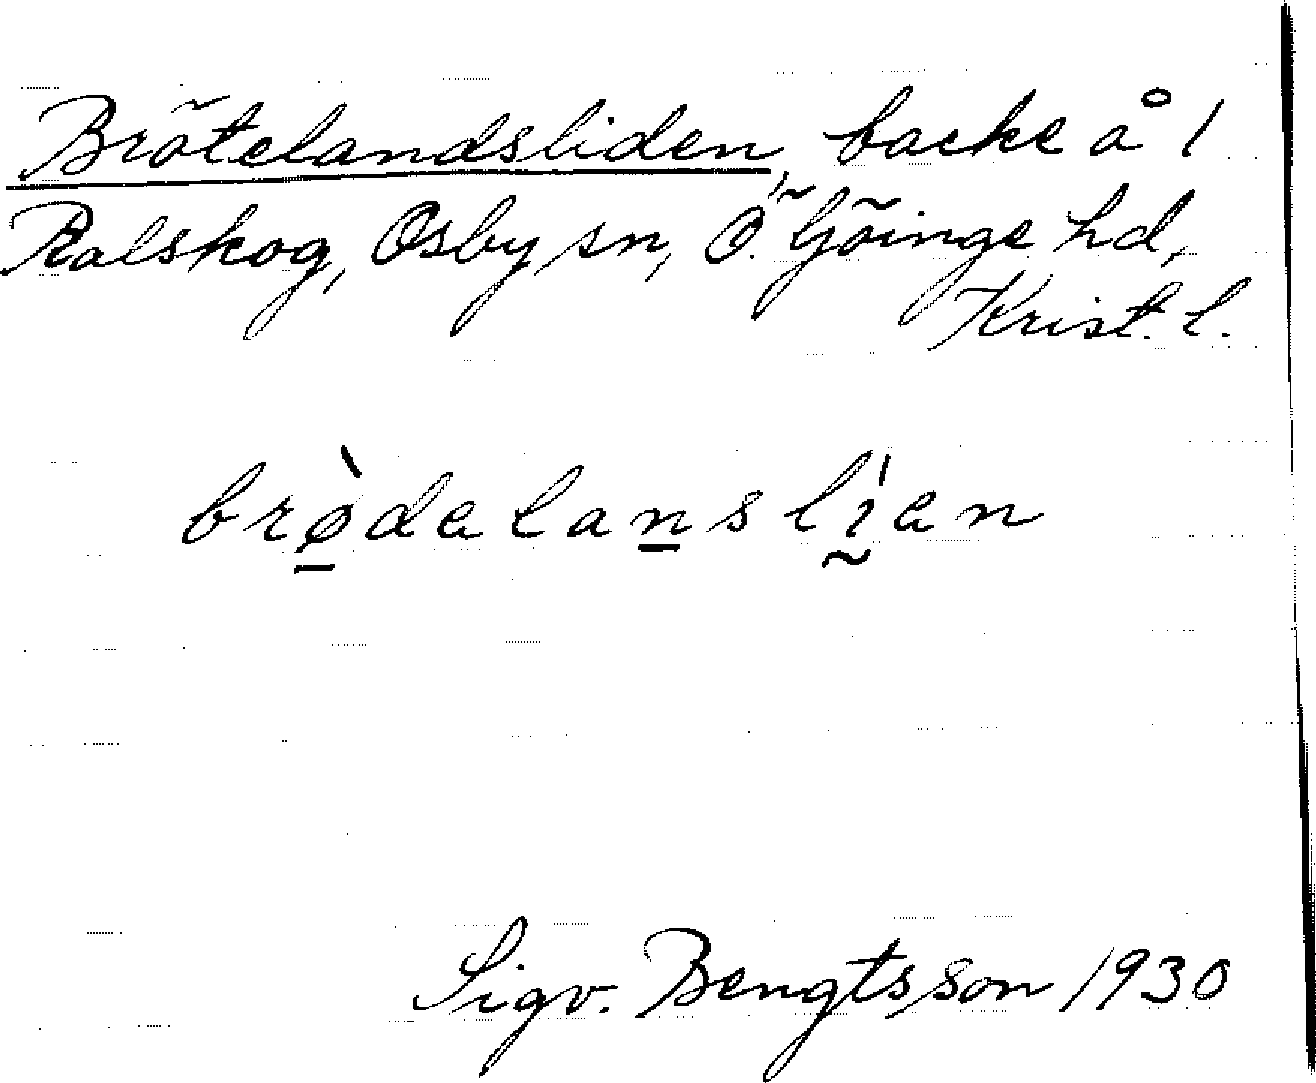 Brötelandsliden, backe å 1
Ralskog, Osby sn, Ö. Göinge hd,
Krist. l.
brø̀delanslíen
Sigv. Bengtsson 1930